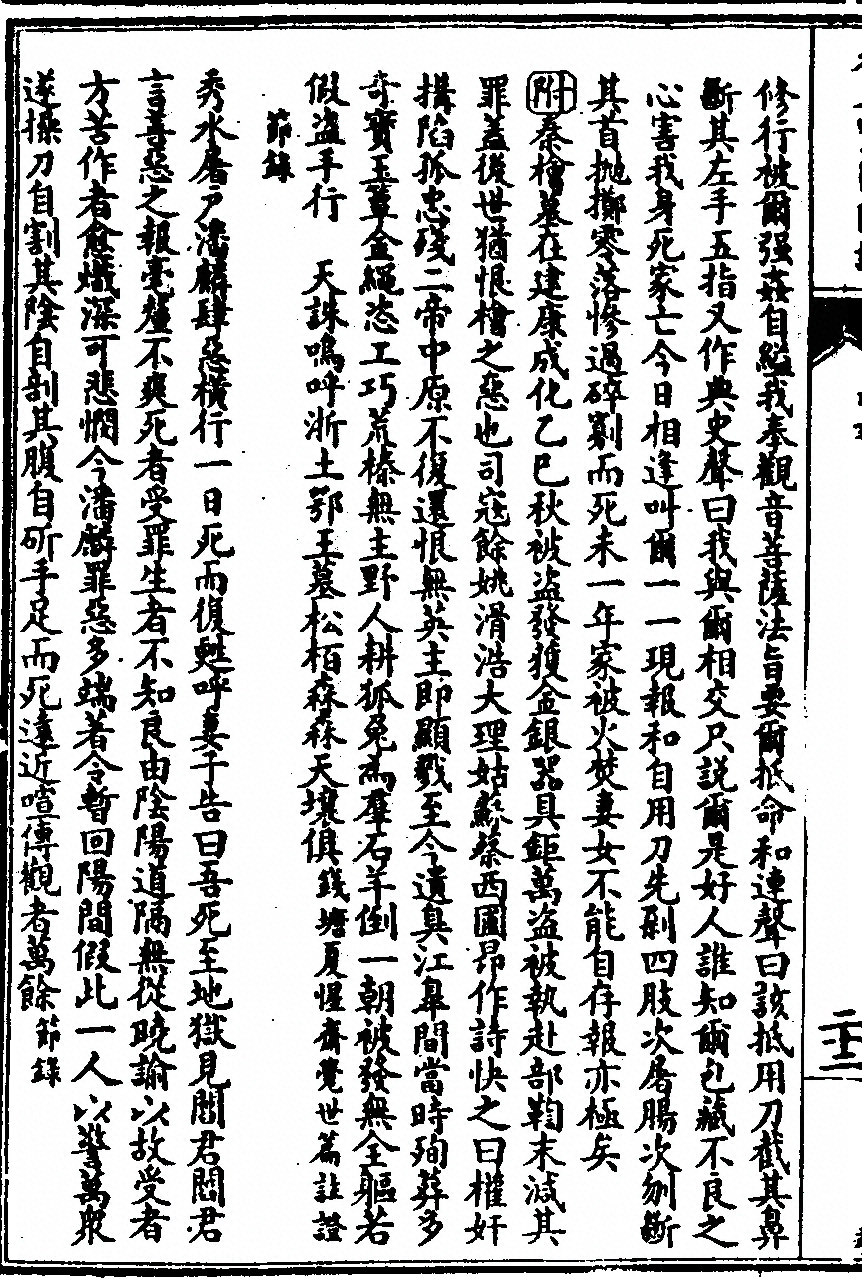 修行被爾强姦自縊我奉觀音菩薩法旨要爾抵命和連聲曰該抵用刀截其鼻
斷其左手五指又作典史聲曰我與爾相交只說爾是好人誰知爾包藏不良之
心害我身死家亡今日相逢叫爾一一現報和自用刀先剮四肢次屠腸次刎斷
其首拋擲零落慘過碎剮而死未一年家被火焚妻女不能自存報亦極矣
附秦檜墓在建康成化乙巳秋被盜發獲金銀器具鉅萬盜被執赴部鞫末減其
罪蓋後世猶恨檜之惡也司寇餘姚滑浩大理姑蘇蔡西圃昂作詩快之曰權奸
搆陷孤忠殘二帝中原不復還恨無英主即顯戮至今遺臭江臯間當時殉葬多
奇寶玉簟金繩恣工巧荒榛無主野人耕狐兔為羣石羊倒一朝被發無全軀若
假盜手行 天誅嗚呼浙土鄂王墓松栢森森天壤俱 錢塘夏惺齋覺世篇註證
節錄
秀水屠戶潘麟肆惡橫行一日死而復甦呼妻子告曰吾死至地獄見閻君閻君
言善惡之報毫釐不爽死者受罪生者不知良由陰陽道隔無從曉諭以故受者
方苦作者愈熾深可悲憫今潘麟罪惡多端著令暫回陽間假此一人以警萬眾
遂操刀自割其陰自剖其腹自斫手足而死遠近喧傳觀者萬餘 節錄
二十二